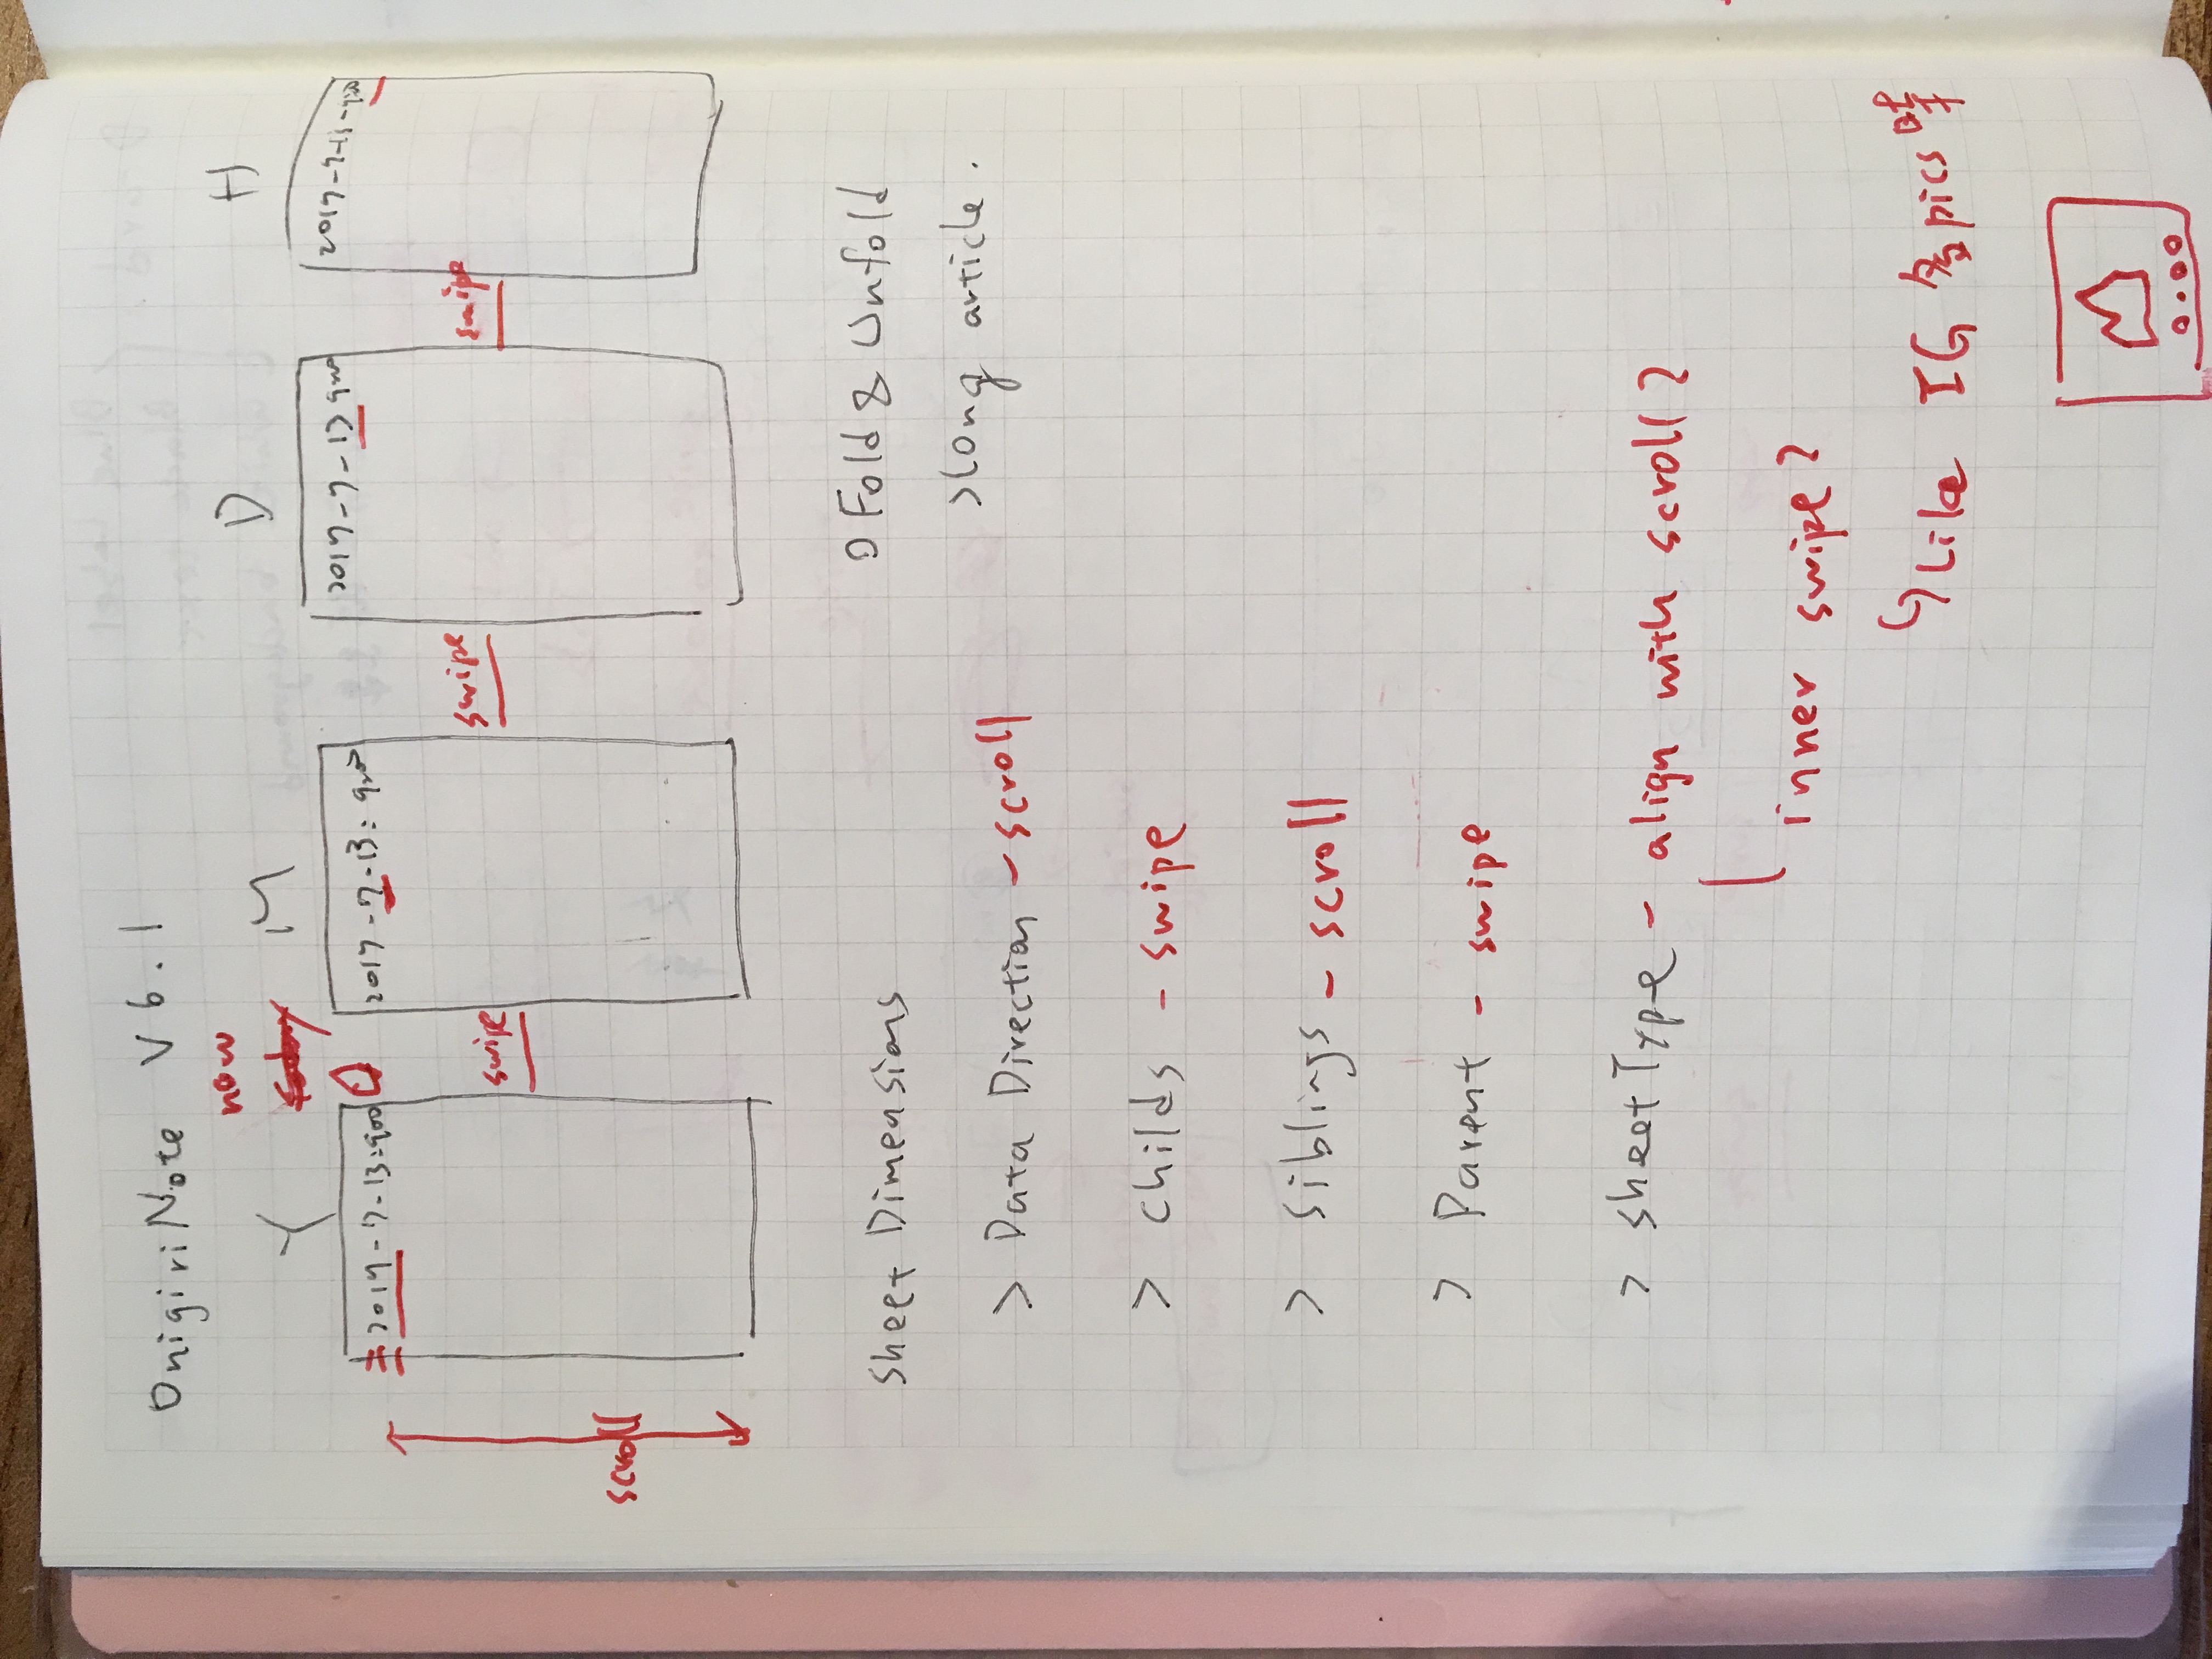 OnigiriNote V6.1
now
today
Y M D H
2017-7-13:900
2017-7-13:900
2017-7-13 900
2017-7-13-900
swipe
swipe
swipe
scroll
Sheet Dimensions
> Data Direction - scroll
> childs - swipe
> siblings - scroll
> Parent - swipe
> sheetType - align with scroll?
inner swipe?
Like IG 多pics 時
Fold & Unfold
> long article.